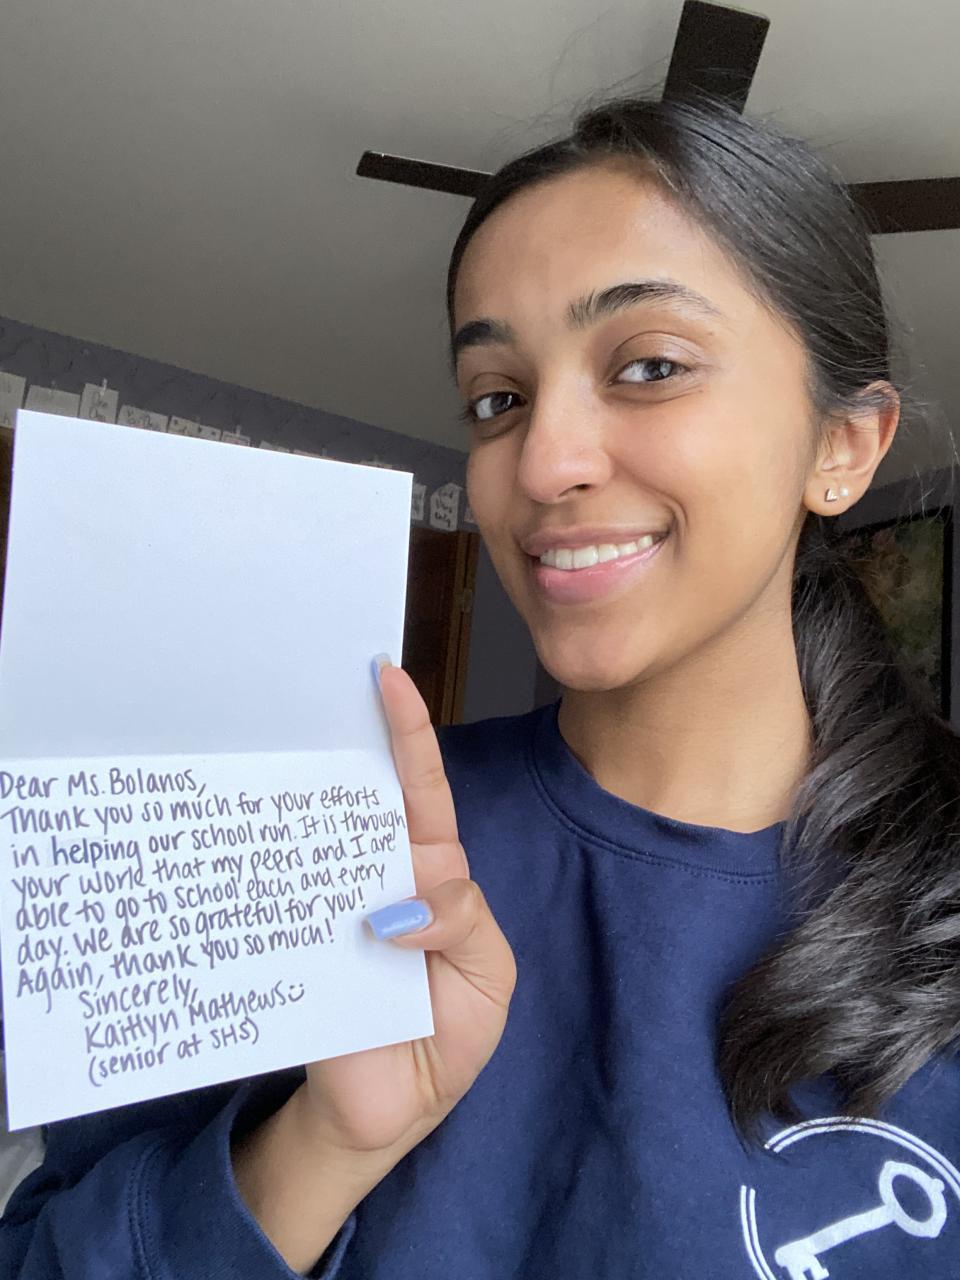 Dear Ms. Bolanos,
Thank you so much for your efforts
in helping our school run. It is through
your world that my peers and I are
able to go to school each and every
day. We are so grateful for you!
Again, thank you so much!
Sincerely,
Kaitlyn Mathews
(senior at SHS)